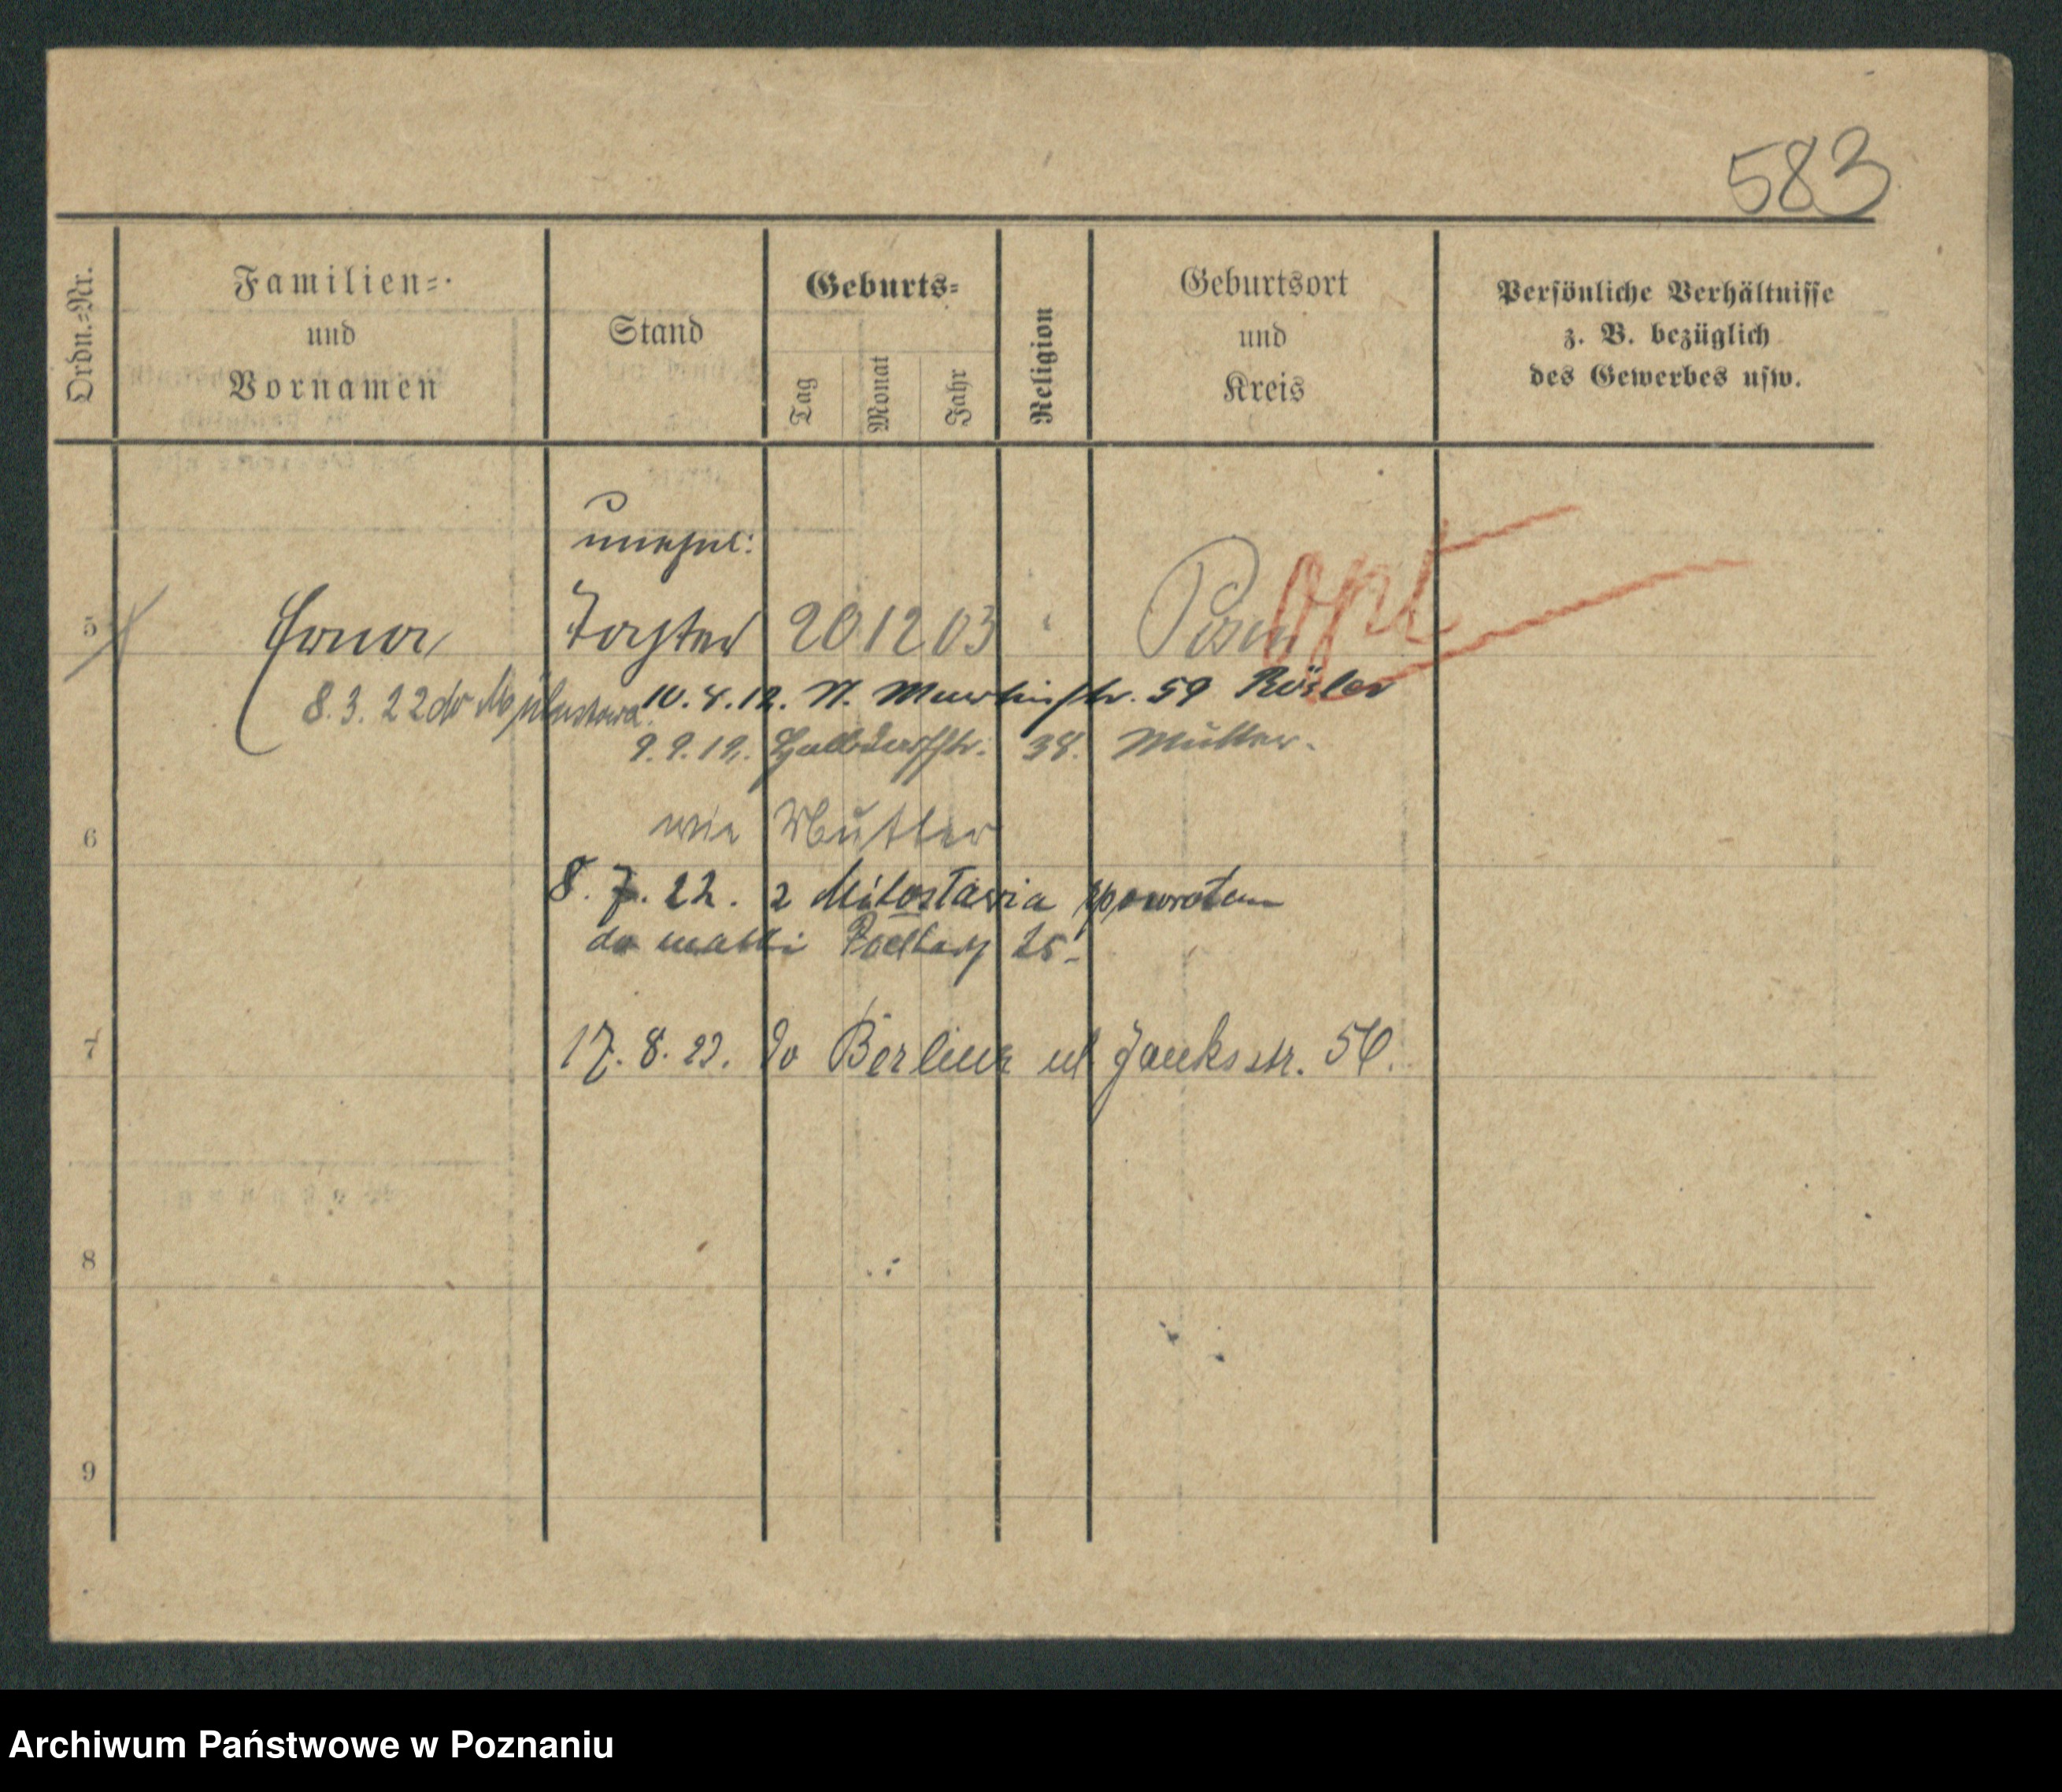 583
Ordn.-Nr.
Familien-
und
Vornamen
Stand
Geburts-
Tag
Monat
Jahr
Religion
Geburtsort
und
Kreis
Persönliche Verhältnisse
z. B. bezüglich
des Gewerbes usw.
unehel:
5 Erna Tochter 20 12 03 Posen opt
8.3.22 do
10.4.12. St. Martinstr. 59 Rösler
9.9.12. Halbdorfstr. 38. Mutter.
6
wie Mutter
8. 7. 22. z Miłostawia zpowrotem
do matki 25.
7
17. 8. 22. do Berlina ul 56.
8
9
Archiwum Państwowe w Poznaniu